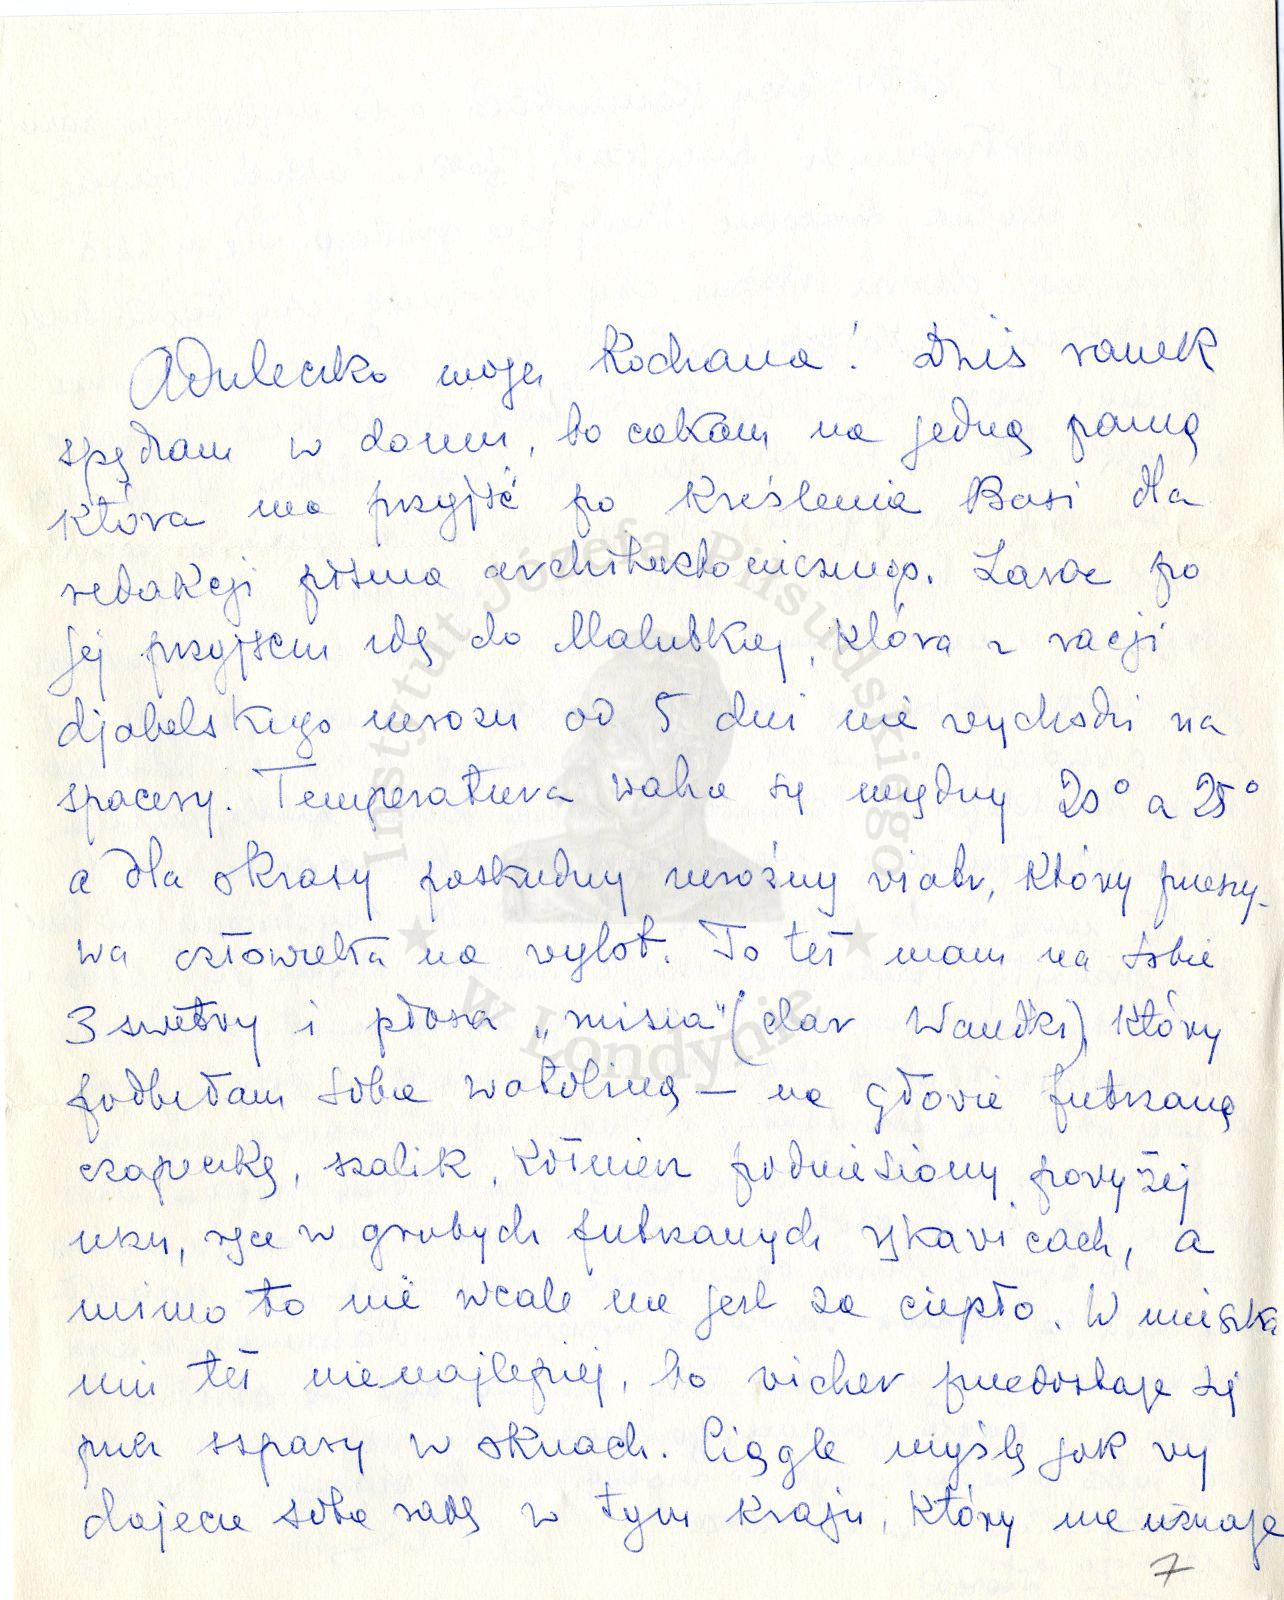 Aduleczko moja Kochana! Dziś ranek
spędzam w domu, bo czekam na jedną panią
która ma przyjść po kreślenia Basi dla
redakcji pisma architektonicznego. Zaraz po
jej przyjściu idę do Malutkiej, która z racji
djabelskiego mrozu od 5 dni nie wychodzi na
spacery. Temperatura waha się między 20° a 25°
a dla okrasy paskudny mroźny wiatr, który przeszy-
wa człowieka na wylot. To też mam na sobie
3 swetry i płaszcz „misia" (dar Wandki) który
podbiłam sobie watoliną – na głowie futrzaną
czapeczkę, szalik, kołnierz podniesiony powyżej
uszu, ręce w grubych futrzanych rękawicach, a
mimo to nie wcale na jest za ciepło. W mieszka
niu też nienajlepiej, bo wicher przedostaje się
przez szpary w oknach. Ciągle myślę jak wy
dajecie sobie radę w tym kraju, który nie uznaje
7
Instytut Józefa Piłsudskiego
w Londynie